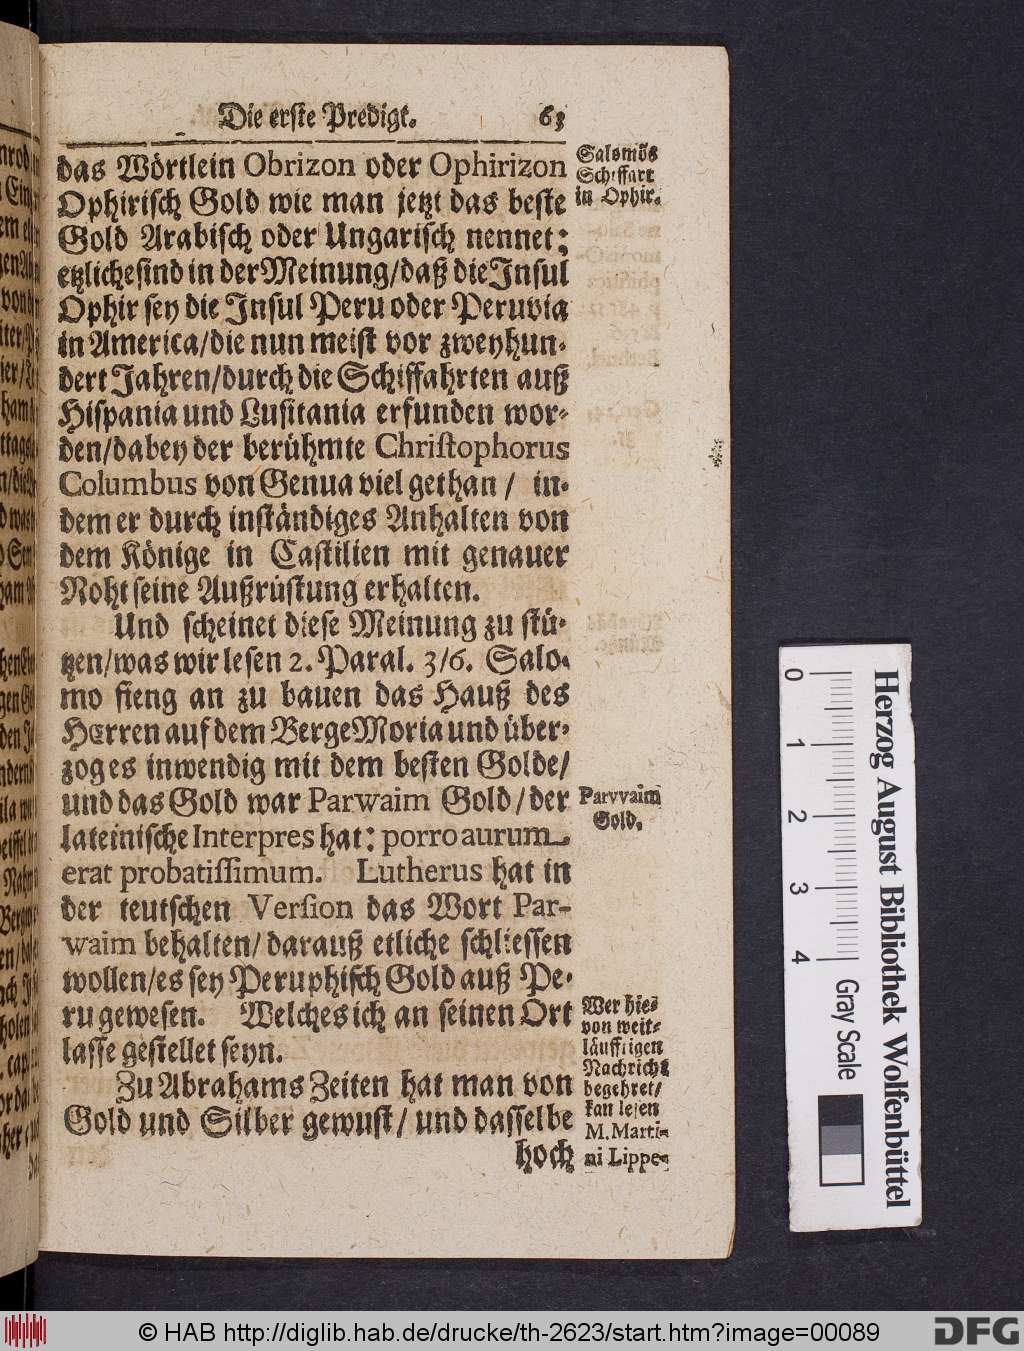 Die erste Predigt. 63
das Wörtlein Obrizon oder Ophirizon
Ophirisch Gold wie man jetzt das beste
Gold Arabisch oder Ungarisch nennet;
etzliche sind in der Meinung/daß die Insul
Ophir sey die Insul Peru oder Peruvia
in America/die nun meist vor zweyhun-
dert Jahren/durch die Schiffahrten auß
Hispania und Lusitania erfunden wor-
den/dabey der berühmte Christophorus
Columbus von Genua viel gethan / in-
dem er durch inständiges Anhalten von
dem Könige in Castilien mit genauer
Noht seine Außrüstung erhalten.
Und scheinet diese Meinung zu stü-
tzen/was wir lesen 2. Paral. 3/6. Salo-
mo fieng an zu bauen das Hauß des
HErren auf dem Berge Moria und über-
zog es inwendig mit dem besten Golde/
und das Gold war Parwaim Gold/der
lateinische Interpres hat: porro aurum
erat probatissimum. Lutherus hat in
der teutschen Version das Wort Par-
waim behalten/darauß etliche schliessen
wollen/es sey Peruphisch Gold auß Pe-
ru gewesen. Welches ich an seinen Ort
lasse gestellet seyn.
Zu Abrahams Zeiten hat man von
Gold und Silber gewust/und dasselbe
hoch
Salomōs
Schiffart
in Ophir.
Parvvaim
Gold.
Wer hie-
von weit-
läufftigen
Nachricht
begehret/
kan lesen
M. Marti-
ni Lippe-
0 1 2 3 4
Herzog August Bibliothek Wolfenbüttel
Gray Scale
© HAB http://diglib.hab.de/drucke/th-2623/start.htm?image=00089
DFG